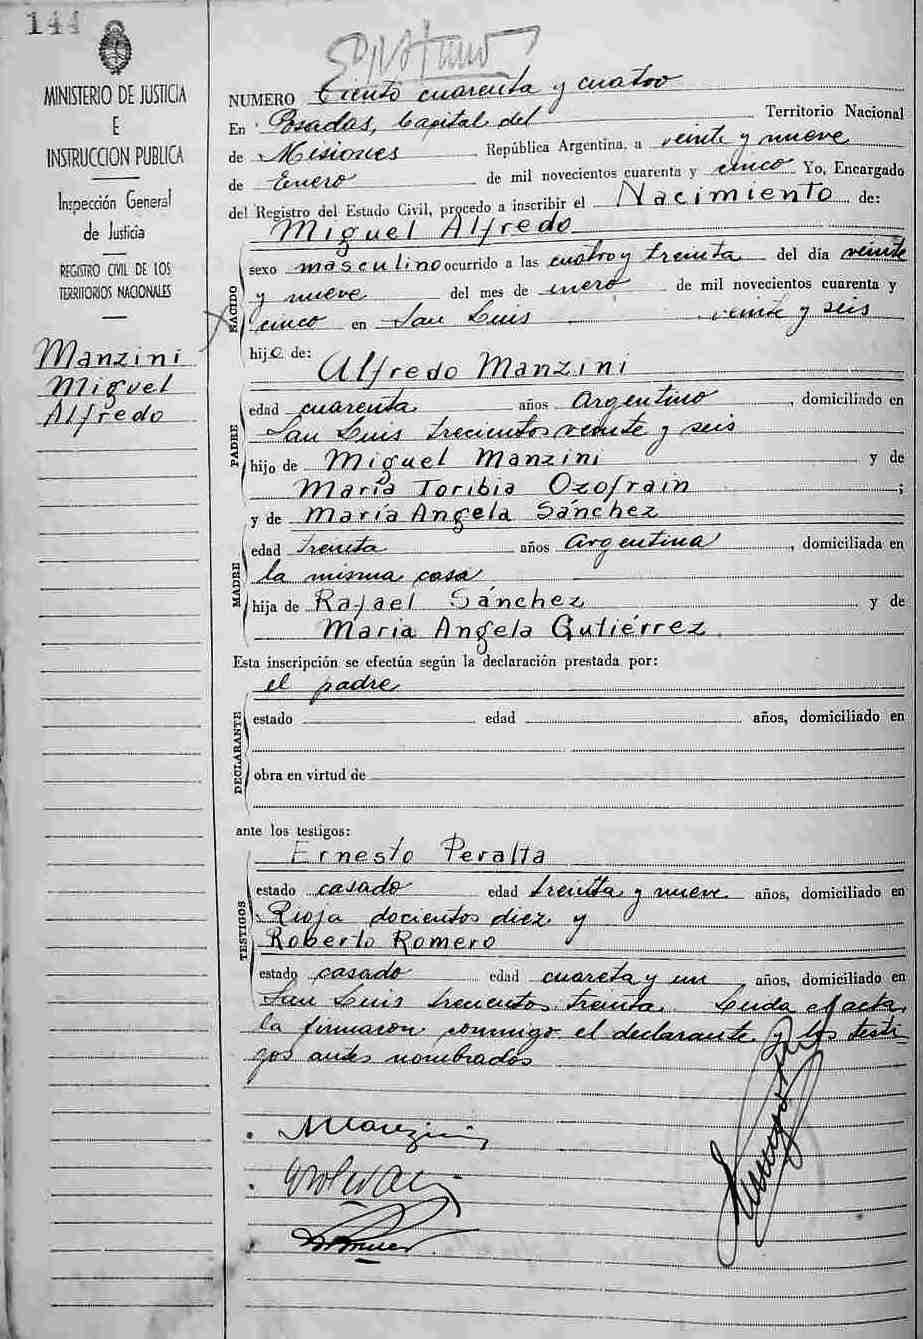 144
MINISTERIO DE JUSTICIA
E
INSTRUCCION PUBLICA
Inspección General
de Justicia
REGISTRO CIVIL DE LOS
TERRITORIOS NACIONALES
Manzini
Miguel
Alfredo
NUMERO Ciento cuarenta y cuatro
En Posadas, Capital del Territorio Nacional
de Misiones República Argentina, a veinte y nueve
de Enero de mil novecientos cuarenta y cinco Yo, Encargado
del Registro del Estado Civil, procedo a inscribir el Nacimiento de:
Miguel Alfredo
NACIDO
sexo masculino ocurrido a las cuatro y treinta del día veinte
y nueve del mes de enero de mil novecientos cuarenta y
cinco en San Luis veinte y seis
hijo de:
Alfredo Manzini
PADRE
edad cuarenta años Argentino, domiciliado en
San Luis trecientos veinte y seis
hijo de Miguel Manzini y de
María Toribia Ozofrain ;
y de María Angela Sánchez
MADRE
edad treinta años Argentina, domiciliada en
la misma casa
hija de Rafael Sánchez y de
María Angela Gutiérrez.
Esta inscripción se efectúa según la declaración prestada por:
el padre
DECLARANTE
estado edad años, domiciliado en
obra en virtud de
ante los testigos:
Ernesto Peralta
TESTIGOS
estado casado edad treinta y nueve años, domiciliado en
Rioja docientos diez y
Roberto Romero
estado casado edad cuareta y un años, domiciliado en
San Luis trecientos treinta. Leida el acta
la firmaron conmigo el declarante y los testi-
gos antes nombrados
Manzini